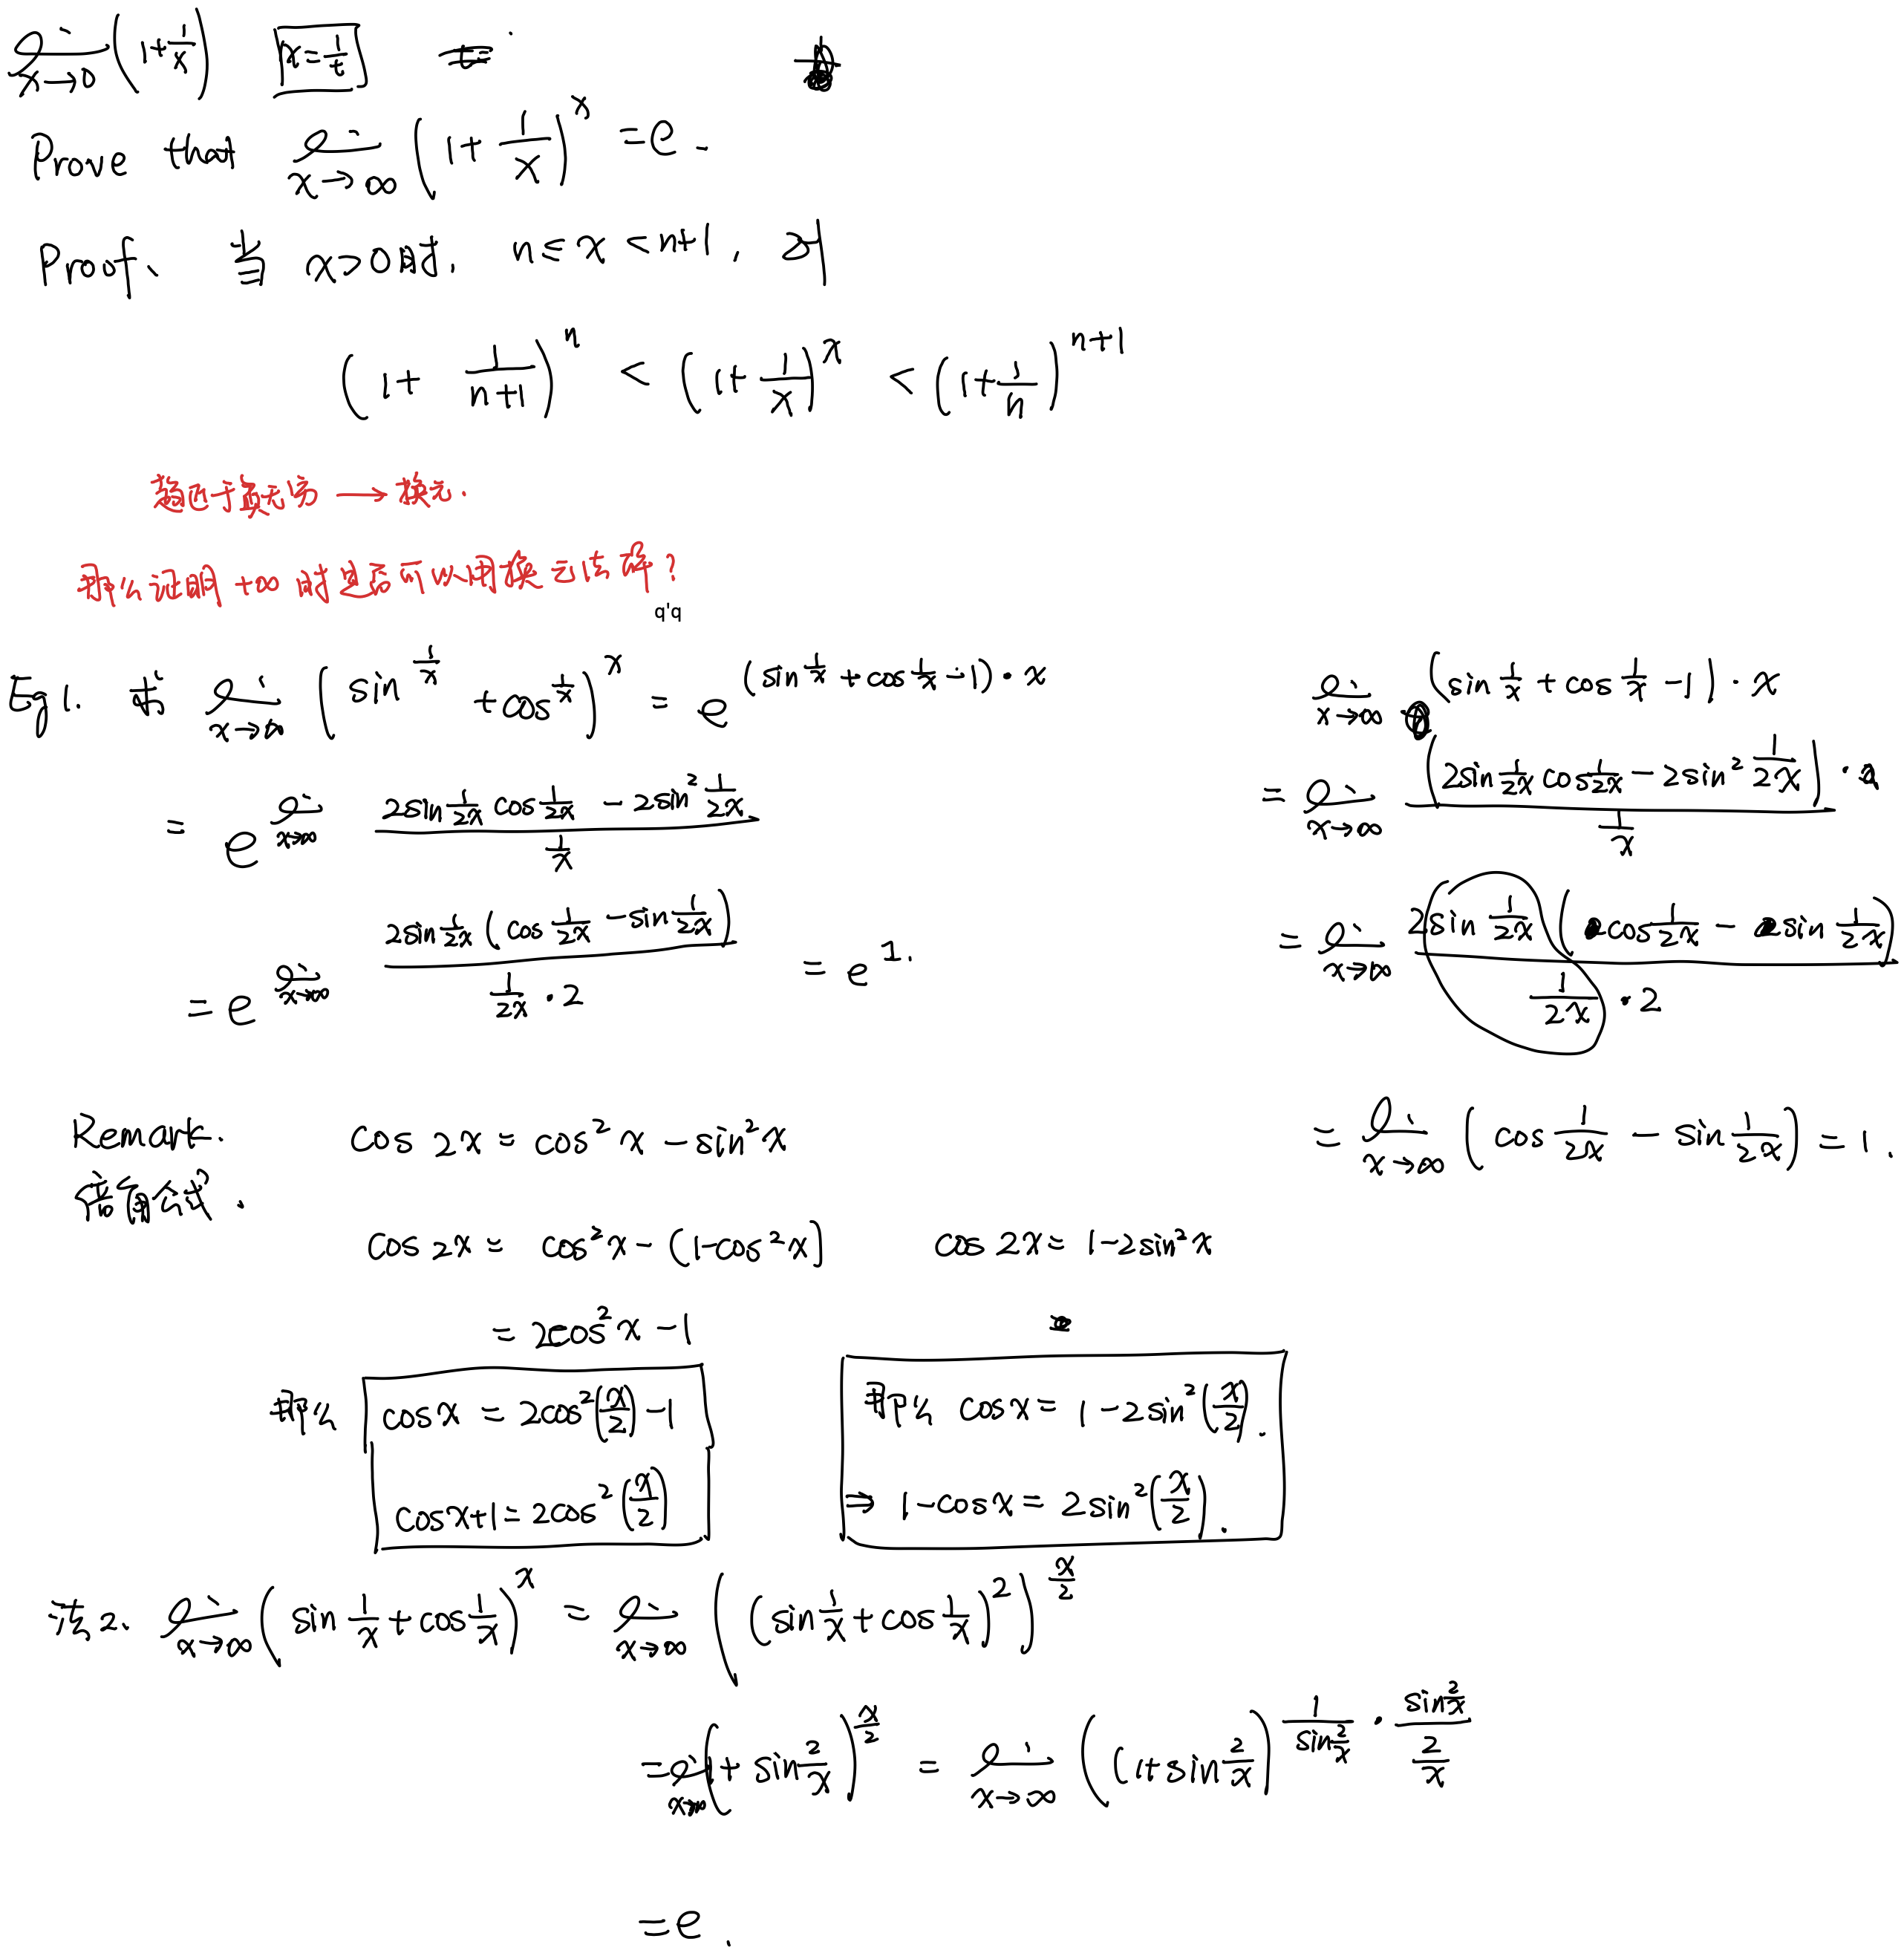 lim x→0 (1+1/x) x=1/t t=
Prove that lim x→∞ (1+1/x)^x =e.
Proof、 当 x>0时, n≤x<n+1, 则
(1+1/(n+1))^n < (1+1/x)^x < (1+1/n)^(n+1)
趋近于负无穷 → 换元.
那么证明 +∞ 时是否可以用换元法解?
q'q
Eg 1. 求 lim x→∞ (sin 1/x + cos 1/x)^x = e^((sin 1/x + cos 1/x -1)·x)
= e^(lim x→∞ (2sin 1/2x cos 1/2x - 2sin² 1/2x)/(1/x))
= e^(lim x→∞ (2sin 1/2x (cos 1/2x - sin 1/2x))/(1/2x · 2)) = e^1.
lim x→∞ (sin 1/x + cos 1/x -1)·x
= lim x→∞ (2sin 1/2x cos 1/2x - 2sin² 1/2x)·/(1/x)
= lim x→∞ 2sin 1/2x (cos 1/2x - sin 1/2x)/(1/2x · 2)
= lim x→∞ (cos 1/2x - sin 1/2x) = 1.
Remark. cos 2x = cos² x - sin² x
倍角公式.
cos 2x = cos² x - (1-cos² x) cos 2x = 1-2sin² x
= 2cos² x -1
那么 cos x = 2cos²(x/2) -1 那么 cos x = 1-2sin²(x/2).
cos x+1 = 2cos²(x/2) ⇒ 1-cos x = 2sin²(x/2).
法2、 lim x→∞ (sin 1/x + cos 1/x)^x = lim x→∞ ((sin 1/x + cos 1/x)²)^(x/2)
= lim x→∞ (1+ sin 2/x)^(x/2) = lim x→∞ ((1+sin 2/x)^(1/(sin 2/x) · (sin 2/x)/(2/x))
=e.